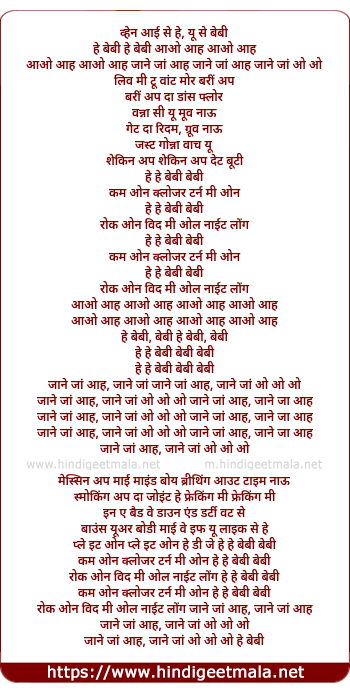 व्हेन आई से हे, यू से बेबी
हे बेबी हे बेबी आओ आह आओ आह
आओ आह आओ आह जाने जां आह जाने जां आह जाने जां ओ ओ
लिव मी टू वांट मोर बरीं अप
बरीं अप दा डांस फ्लोर
वन्ना सी यू मूव नाऊ
गेट दा रिदम, ग्रूव नाऊ
जस्ट गोन्ना वाच यू
शेकिन अप शेकिन अप देट बूटी
हे हे बेबी बेबी
कम ओन क्लोजर टर्न मी ओन
हे हे बेबी बेबी
रोक ओन विद मी ओल नाईट लोंग
हे हे बेबी बेबी
कम ओन क्लोजर टर्न मी ओन
हे हे बेबी बेबी
रोक ओन विद मी ओल नाईट लोंग
आओ आह आओ आह आओ आह आओ आह
आओ आह आओ आह आओ आह आओ आह
हे बेबी, बेबी हे बेबी, बेबी
हे हे बेबी बेबी बेबी
हे हे बेबी बेबी बेबी
जाने जां आह, जाने जां जाने जां आह, जाने जां ओ ओ ओ
जाने जां आह, जाने जां ओ ओ ओ जाने जां आह, जाने जा आह
जाने जां आह, जाने जां ओ ओ ओ जाने जां आह, जाने जा आह
जाने जां आह, जाने जां ओ ओ ओ जाने जां आह, जाने जा आह
जाने जां आह, जाने जां ओ ओ ओ
www.hindigeetmala.net m.hindigeetmala.net
मेस्सिन अप माई माइंड बोय ब्रीथिंग आउट टाइम नाऊ
स्मोकिंग अप दा जोइंट हे फ्रेकिंग मी फ्रेकिंग मी
इन ए बैड वे डाउन एंड डर्टी वट से
बाउंस यूअर बोडी माई वे इफ यू लाइक से हे
प्ले इट ओन प्ले इट ओन हे डी जे हे हे बेबी बेबी
कम ओन क्लोजर टर्न मी ओन हे हे बेबी बेबी
रोक ओन विद मी ओल नाईट लोंग हे हे बेबी बेबी
कम ओन क्लोजर टर्न मी ओन हे हे बेबी बेबी
रोक ओन विद मी ओल नाईट लोंग जाने जां आह, जाने जां आह
जाने जां आह, जाने जां ओ ओ ओ
जाने जां आह, जाने जां ओ ओ ओ हे बेबी
https://www.hindigeetmala.net